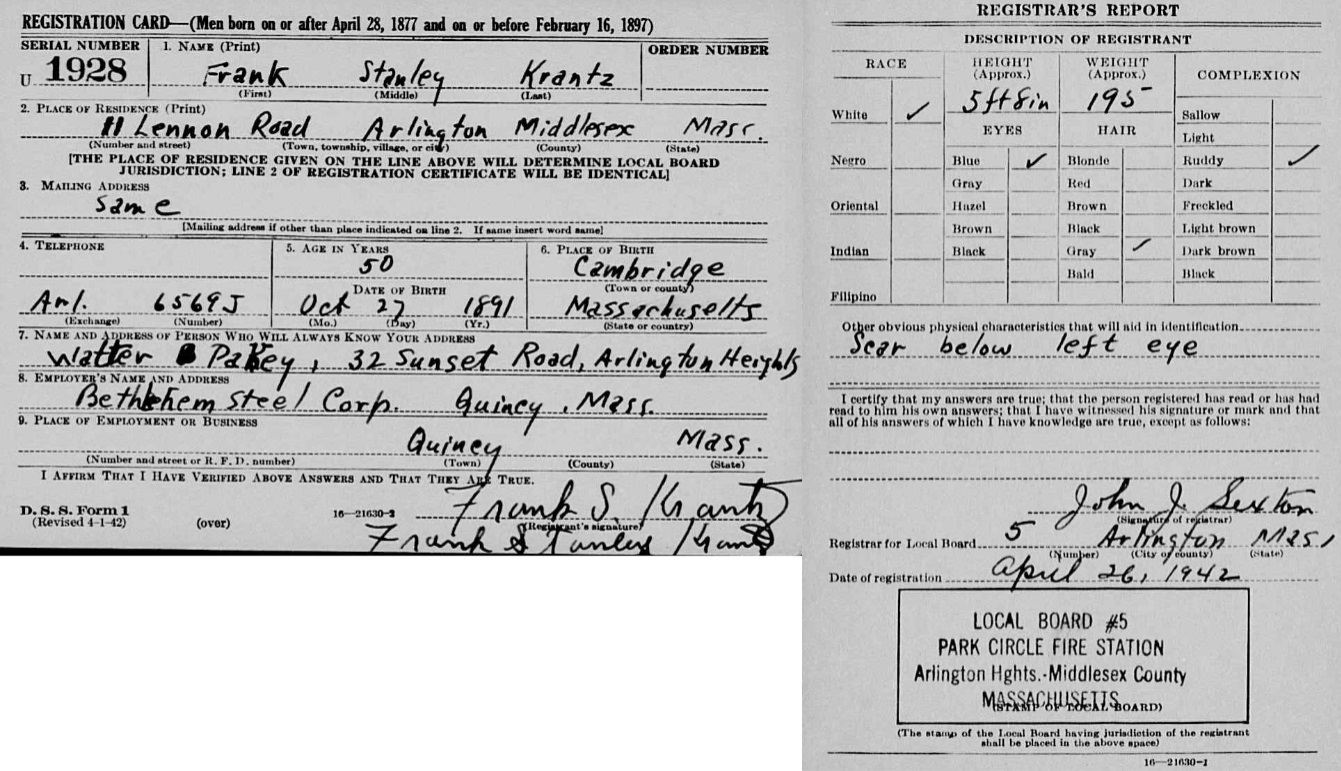 REGISTRATION CARD—(Men born on or after April 28, 1877 and on or before February 16, 1897)
SERIAL NUMBER
1. NAME (Print)
ORDER NUMBER
U 1928
Frank Stanley Krantz
(First) (Middle) (Last)
2. PLACE OF RESIDENCE (Print)
11 Lennon Road Arlington Middlesex Mass.
(Number and street) (Town, township, village, or city) (County) (State)
[THE PLACE OF RESIDENCE GIVEN ON THE LINE ABOVE WILL DETERMINE LOCAL BOARD
JURISDICTION; LINE 2 OF REGISTRATION CERTIFICATE WILL BE IDENTICAL]
3. MAILING ADDRESS
Same
[Mailing address if other than place indicated on line 2. If same insert word same]
4. TELEPHONE
5. AGE IN YEARS
6. PLACE OF BIRTH
50
Cambridge
DATE OF BIRTH
(Town or county)
Arl. 6569J
Oct 27 1891
Massachusetts
(Exchange) (Number)
(Mo.) (Day) (Yr.)
(State or country)
7. NAME AND ADDRESS OF PERSON WHO WILL ALWAYS KNOW YOUR ADDRESS
Walter Pakey, 32 Sunset Road, Arlington Heights
8. EMPLOYER'S NAME AND ADDRESS
Bethlehem Steel Corp. Quincy, Mass.
9. PLACE OF EMPLOYMENT OR BUSINESS
Quincy Mass.
(Number and street or R. F. D. number) (Town) (County) (State)
I AFFIRM THAT I HAVE VERIFIED ABOVE ANSWERS AND THAT THEY ARE TRUE.
Frank S. Krantz
D. S. S. Form 1
(Revised 4-1-42) (over) 16—21630-2 (Registrant's signature)
Frank Stanley Krantz
REGISTRAR'S REPORT
DESCRIPTION OF REGISTRANT
RACE
HEIGHT
(Approx.)
WEIGHT
(Approx.)
COMPLEXION
White ✓
5 ft 8 in
195
Sallow
EYES
HAIR
Light
Negro
Blue ✓
Blonde
Ruddy ✓
Gray
Red
Dark
Oriental
Hazel
Brown
Freckled
Brown
Black
Light brown
Indian
Black
Gray ✓
Dark brown
Bald
Black
Filipino
Other obvious physical characteristics that will aid in identification
Scar below left eye
I certify that my answers are true; that the person registered has read or has had
read to him his own answers; that I have witnessed his signature or mark and that
all of his answers of which I have knowledge are true, except as follows:
John J. Sexton
(Signature of registrar)
Registrar for Local Board 5 Arlington Mass
(Number) (City or county) (State)
Date of registration April 26, 1942
LOCAL BOARD #5
PARK CIRCLE FIRE STATION
Arlington Hghts.-Middlesex County
MASSACHUSETTS
(STAMP OF LOCAL BOARD)
(The stamp of the Local Board having jurisdiction of the registrant
shall be placed in the above space)
16—21630-1